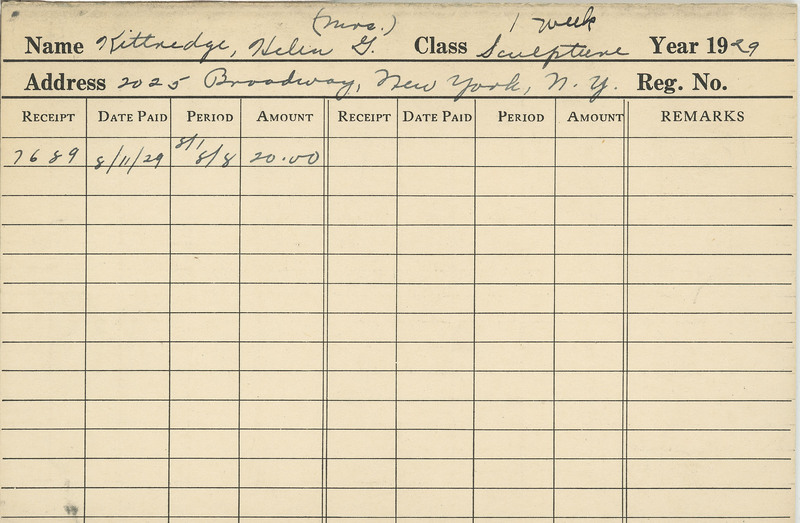 (Mrs.) 1 week
Name Kittredge, Helen G. Class Sculpture Year 1929
Address 2025 Broadway, New York, N.Y. Reg. No.
RECEIPT DATE PAID PERIOD AMOUNT RECEIPT DATE PAID PERIOD AMOUNT REMARKS
7689 8/11/29 8/1 8/8 20.00